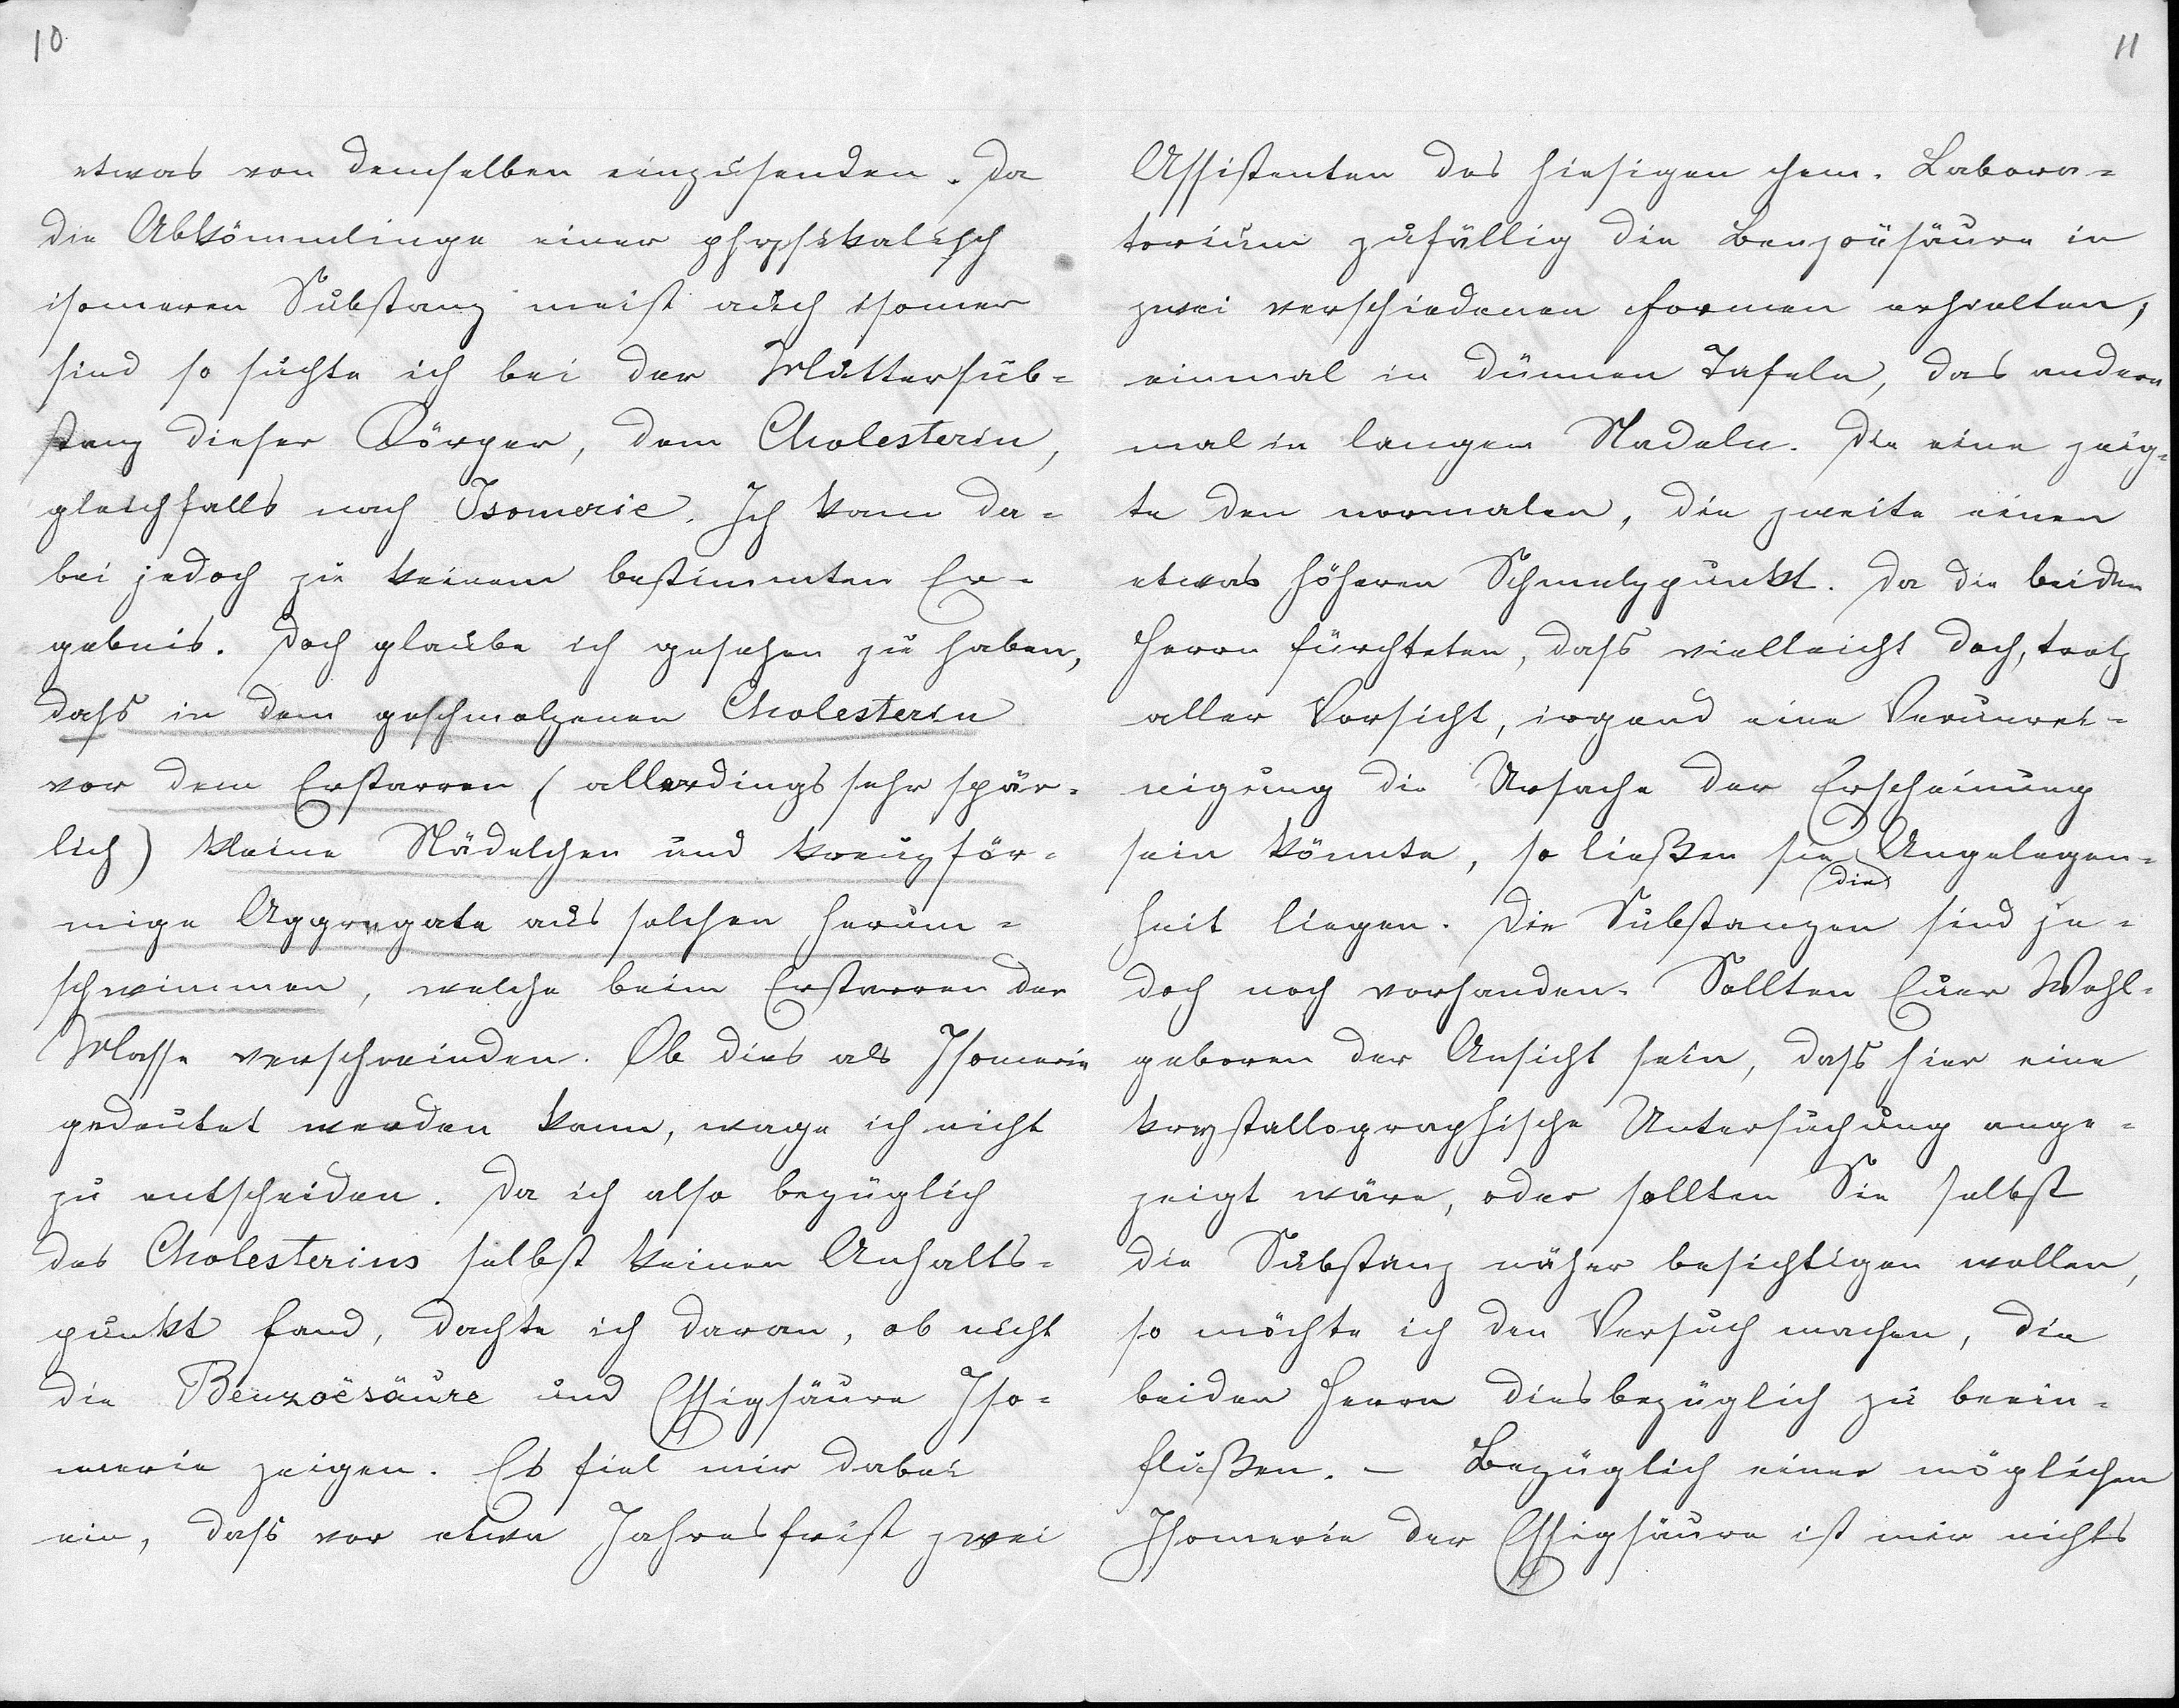 10
etwas von demselben einzusenden. Da
die Abkömmlinge einer physikalisch
isomeren Substanz meist auch isomer
sind so suchte ich bei der Muttersub-
stanz dieser Körper, dem Cholesterin,
gleichfalls nach Isomerie. Ich kam da-
bei jedoch zu keinem bestimmten Er-
gebnis. Doch glaube ich gesehen zu haben,
dass in dem geschmolzenen Cholesterin
vor dem Erstarren (allerdings sehr spär-
lich) kleine Nädelchen und kreuzför-
mige Aggregate aus solchen herum-
schwimmen, welche beim Erstarren der
Masse verschwinden. Ob dies als Isomerie
gedeutet werden kann, wage ich nicht
zu entscheiden. Da ich also bezüglich
des Cholesterins selbst keinen Anhalts-
punkt fand, dachte ich daran, ob nicht
die Benzoësäure und Essigsäure Iso-
merie zeigen. Es fiel mir dabei
ein, dass vor etwa Jahresfrist zwei
11
Assistenten des hiesigen chem. Labora-
torium zufällig die Benzoësäure in
zwei verschiedenen Formen erhielten,
einmal in dünnen Tafeln, das andere
mal in langen Nadeln. Die eine zeig-
te den normalen, die zweite einen
etwas höheren Schmelzpunkt. Da die beiden
Herrn fürchteten, dass vielleicht doch, trotz
aller Vorsicht, irgend eine Verunrei-
nigung die Ursache der Erscheinung
sein könnte, so ließen sie die Angelegen-
heit liegen. Die Substanzen sind je-
doch noch vorhanden. Sollten Euer Wohl-
geboren der Ansicht sein, dass hier eine
krystallographische Untersuchung ange-
zeigt wäre, oder sollten Sie selbst
die Substanz näher besichtigen wollen,
so möchte ich den Versuch machen, die
beiden Herrn diesbezüglich zu beein-
flußen. – Bezüglich einer möglichen
Isomerie der Essigsäure ist mir nichts